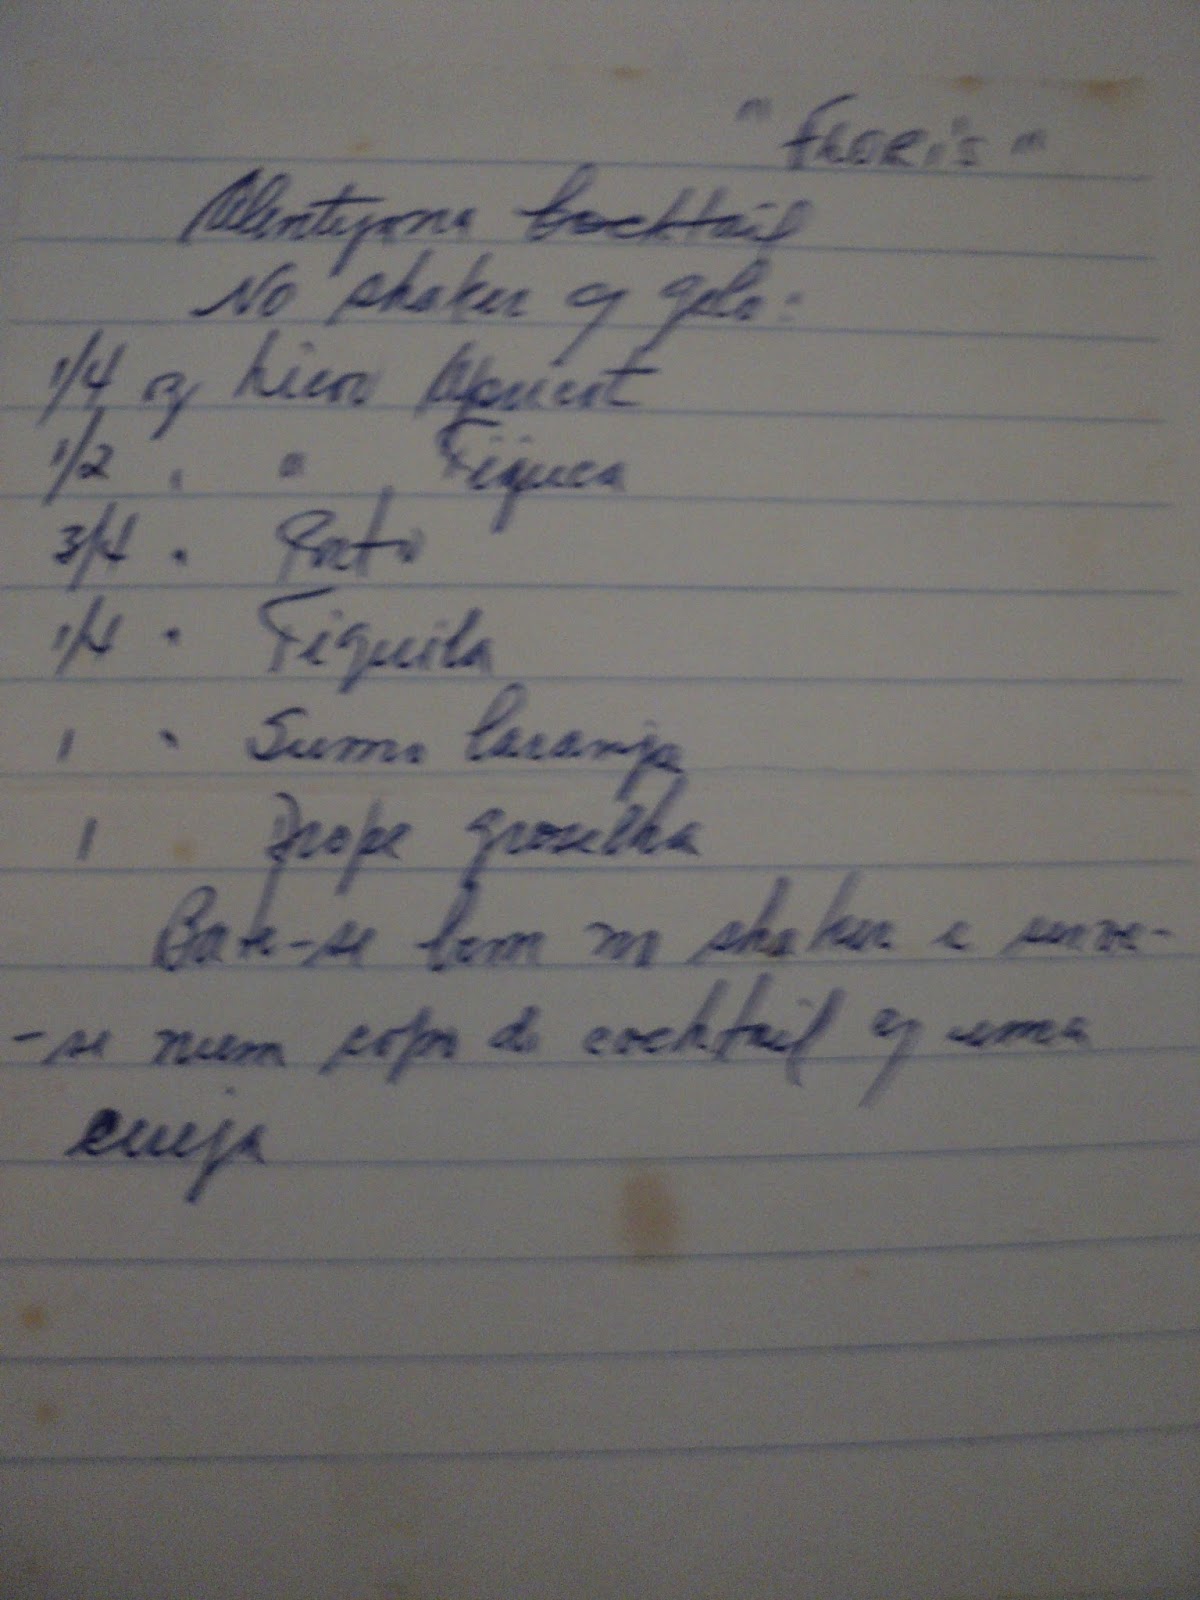 "FLORiS"
Alentejana Cocktail
No shaker c/ gelo:
1/4 oz Licor Apricot
1/2 " " Tiquca
3/4 " Porto
1/4 " Tiquila
1 " Sumo laranja
1 Drope groselha
Bate-se bem no shaker e serve-
-se num copo de cocktail c/ uma
cereja